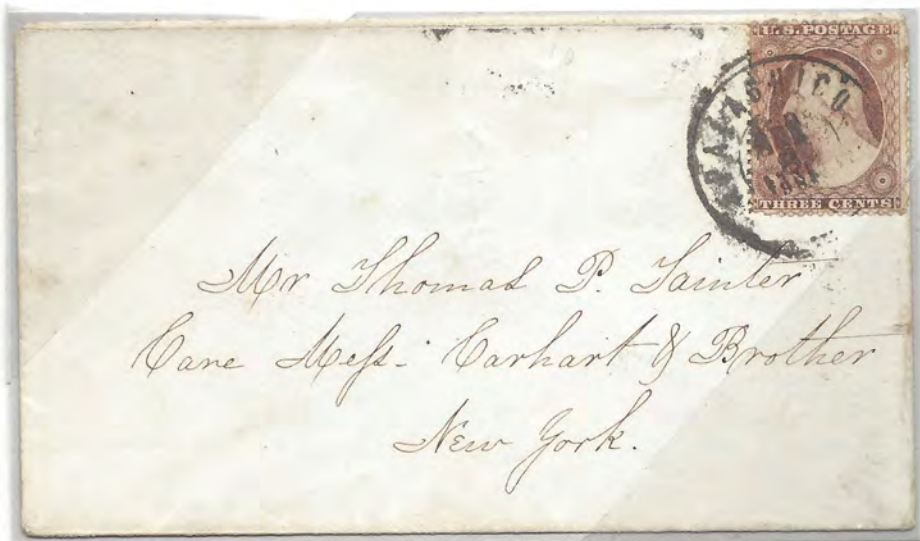 U.S. POSTAGE
THREE CENTS
Mr Thomas P. Tainter
Care Mess. Carhart & Brother
New York.